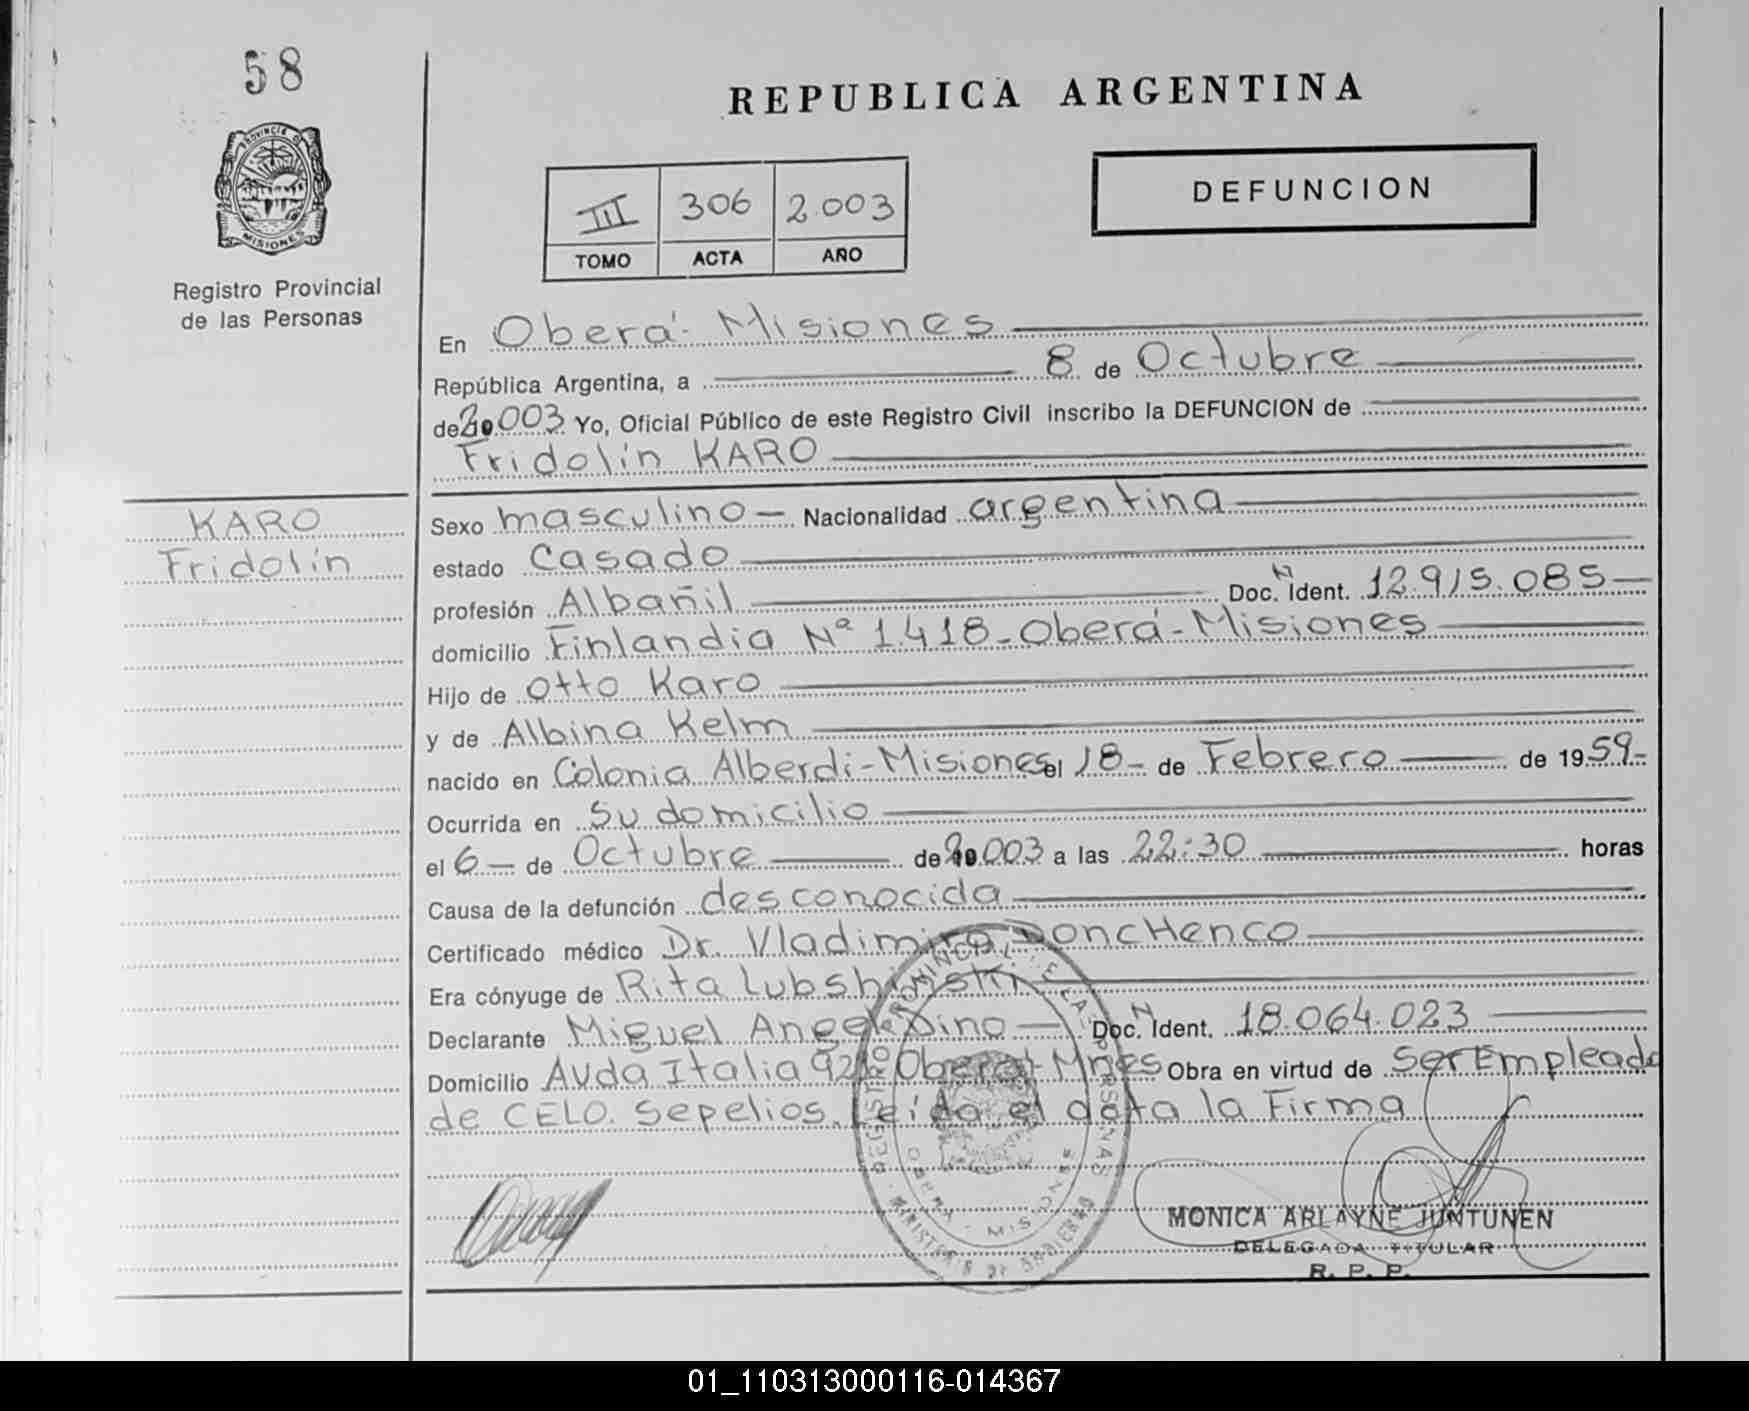 58
REPUBLICA ARGENTINA
PROVINCIA D
MISIONES
DEFUNCION
III 306 2.003
TOMO ACTA AÑO
Registro Provincial
de las Personas
En Oberá - Misiones
República Argentina, a 8 de Octubre
de 2.003 Yo, Oficial Público de este Registro Civil inscribo la DEFUNCION de
Fridolín KARO
KARO
Fridolín
Sexo masculino - Nacionalidad argentina
estado Casado
profesión Albañil Doc. N Ident. 12.915.085
domicilio Finlandia Nº 1418 - Oberá - Misiones
Hijo de Otto Karo
y de Albina Kelm
nacido en Colonia Alberdi - Misiones el 18 - de Febrero de 1959 -
Ocurrida en su domicilio
el 6 - de Octubre de 2.003 a las 22:30 horas
Causa de la defunción desconocida
Certificado médico Dr. Vladimiro DoncHenco
Era cónyuge de Rita
Declarante Miguel Angel Dino - Doc. N Ident. 18.064.023
Domicilio Avda Italia Oberá - Mnes Obra en virtud de ser Empleado
de CELO. Sepelios. Leída el data la Firma
OBERA - MISIONES
MINISTERIO DE GOBIERNO
MONICA ARLAYNE JUNTUNEN
DELEGADA TITULAR
R. P. P.
01_110313000116-014367